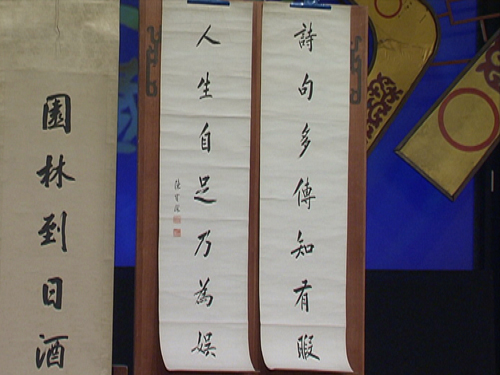 詩句多傳知有暇
人生自足乃為娛
園林到日酒